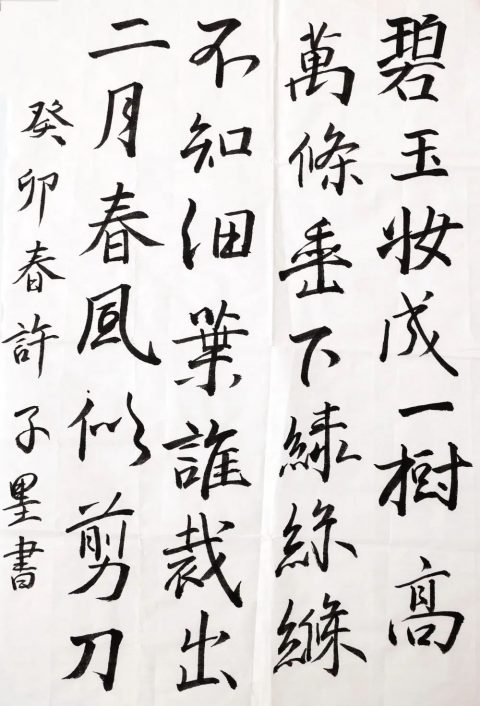 碧玉妝成一樹高
萬條垂下綠絲縧
不知細葉誰裁出
二月春風似剪刀
癸卯春許子墨書